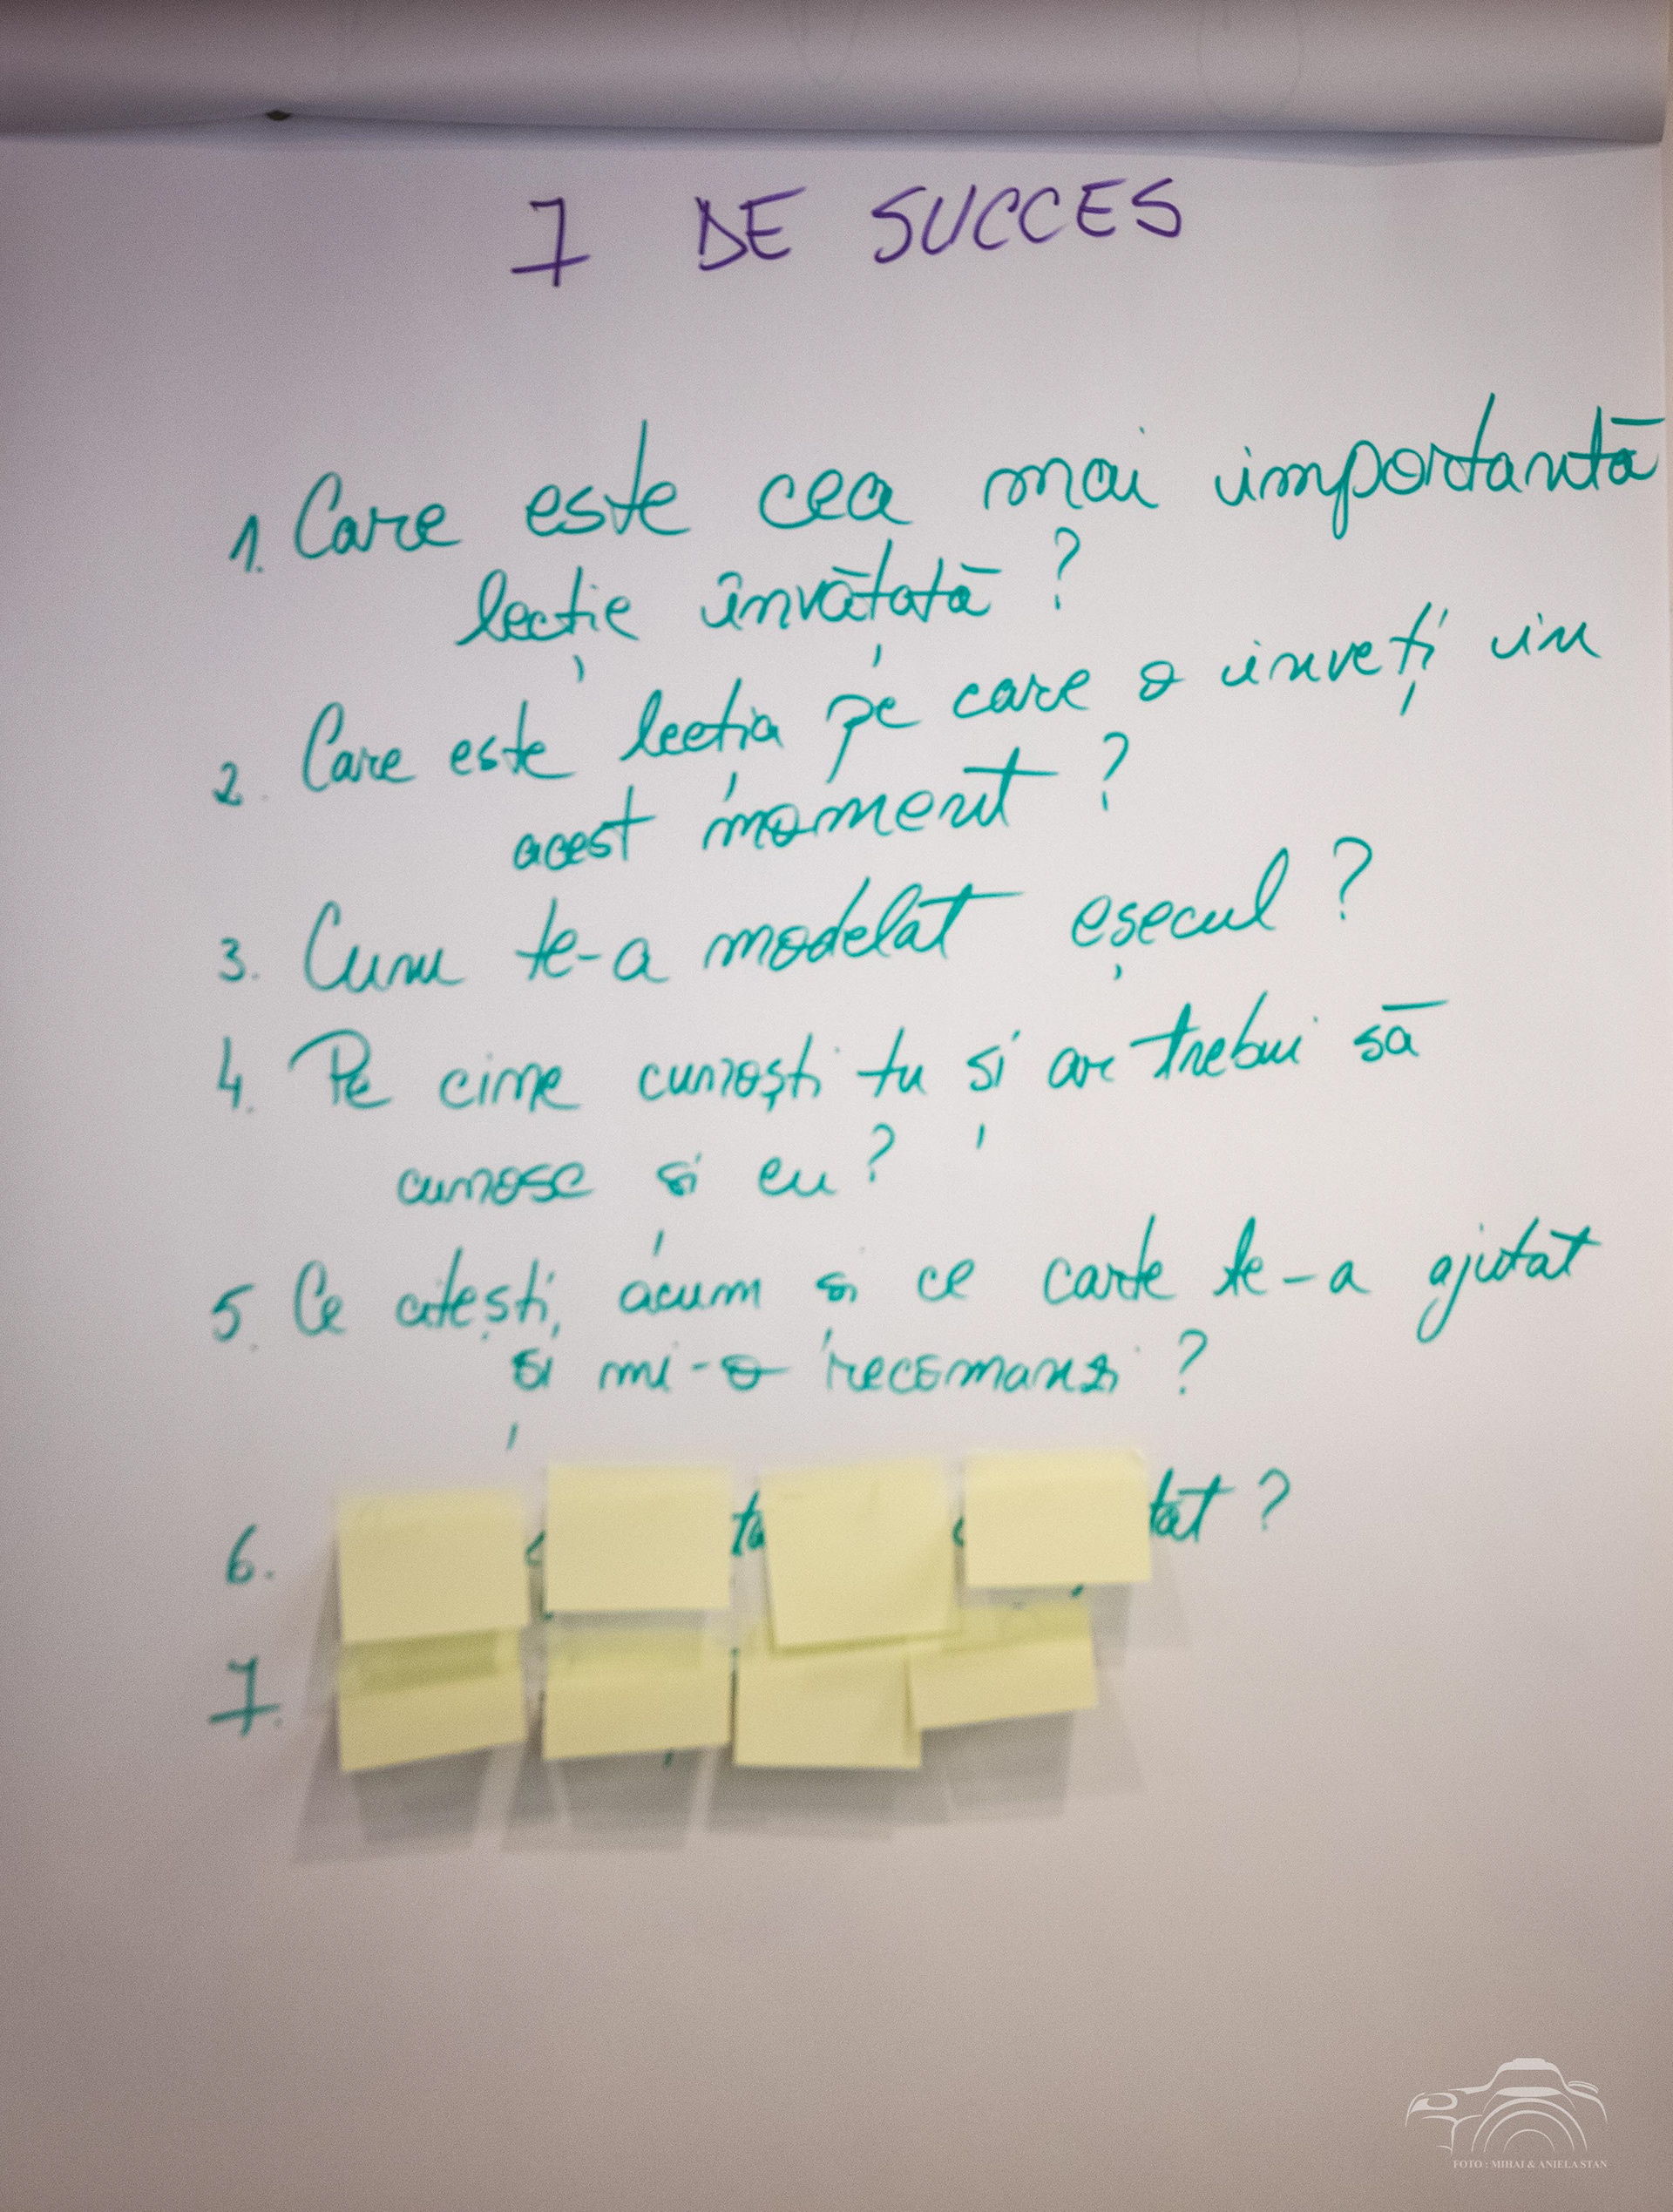 7 DE SUCCES
1. Care este cea mai importantă
lecție învățată ?
2. Care este lecția pe care o înveți în
acest moment ?
3. Cum te-a modelat eșecul ?
4. Pe cine cunoști tu și ar trebui să
cunosc și eu ?
5. Ce citești, acum și ce carte te-a ajutat
și mi-o recomanzi ?
6.
7.
FOTO : MIHAI & ANIELA STAN